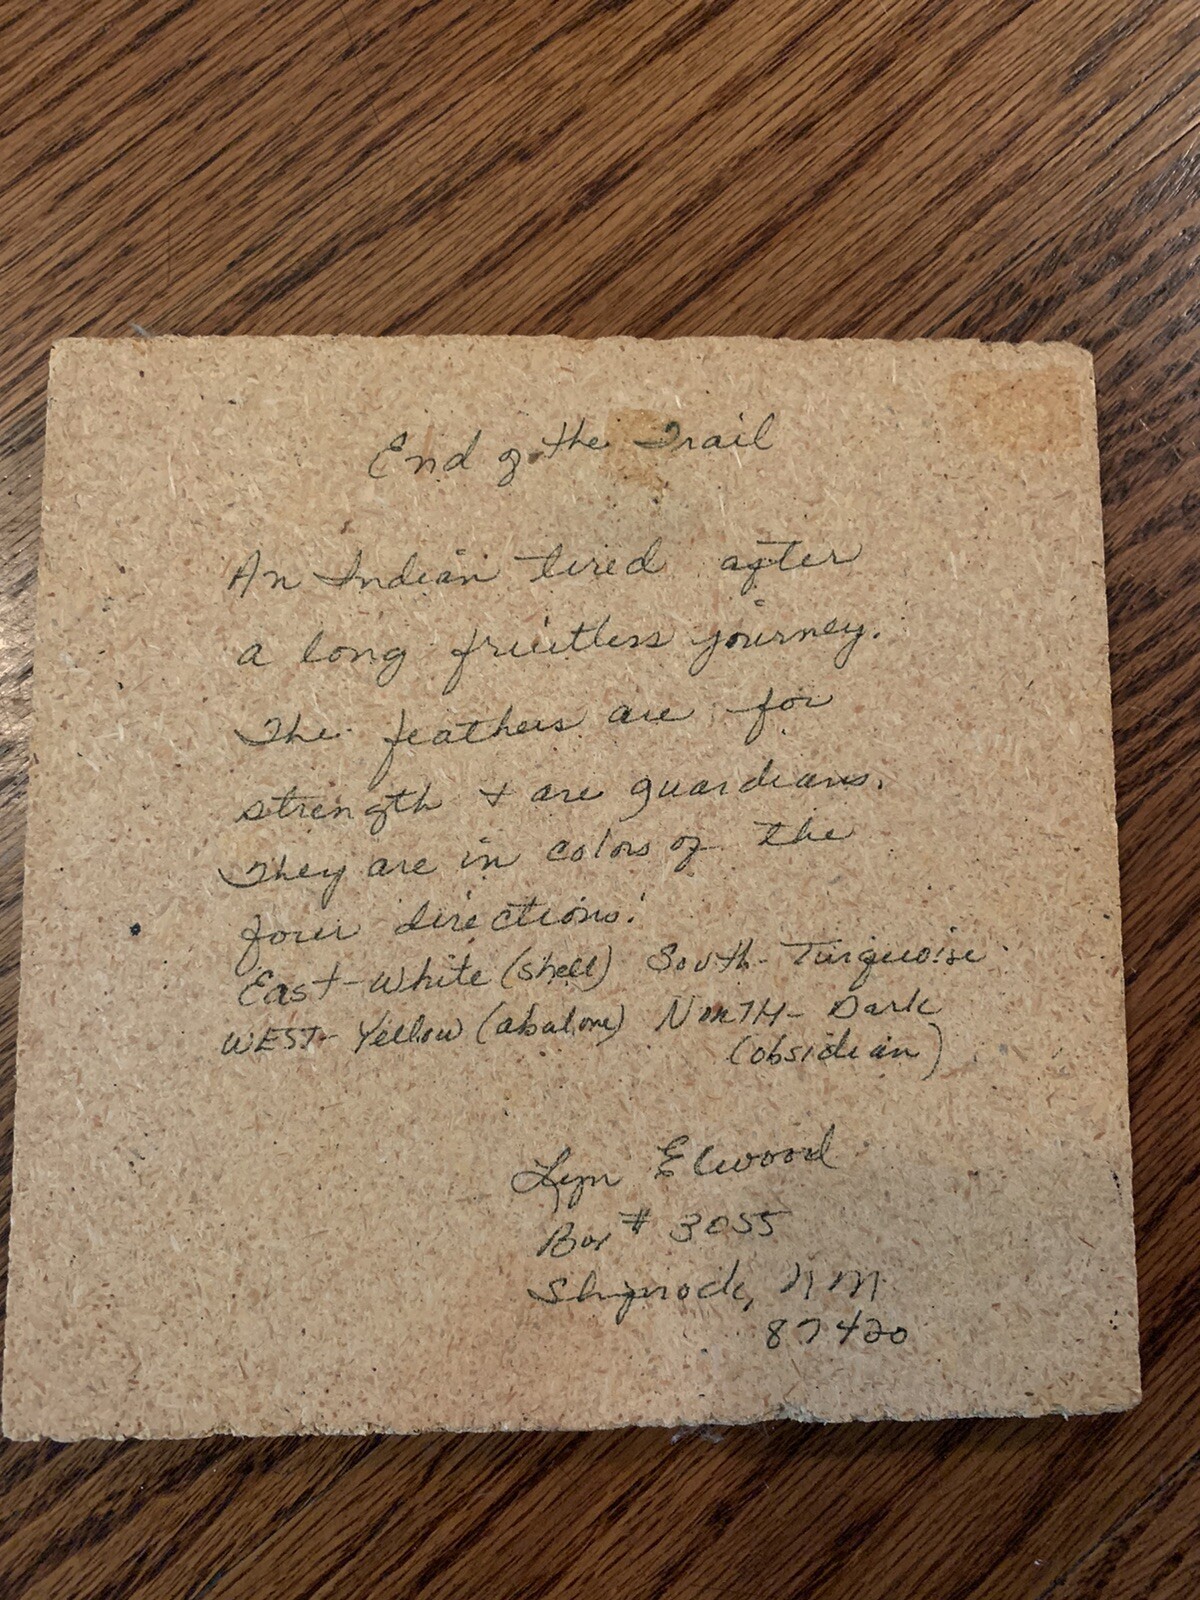 End of the Trail
An Indian tired after
a long fruitless journey.
The feathers are for
strength + are guardians.
They are in colors of the
four directions:
East-White (shell) South-Turquoise
WEST-Yellow (abalone) NORTH-Dark
(obsidian)
Lyn Elwood
Box # 3055
Shiprock, NM
87420